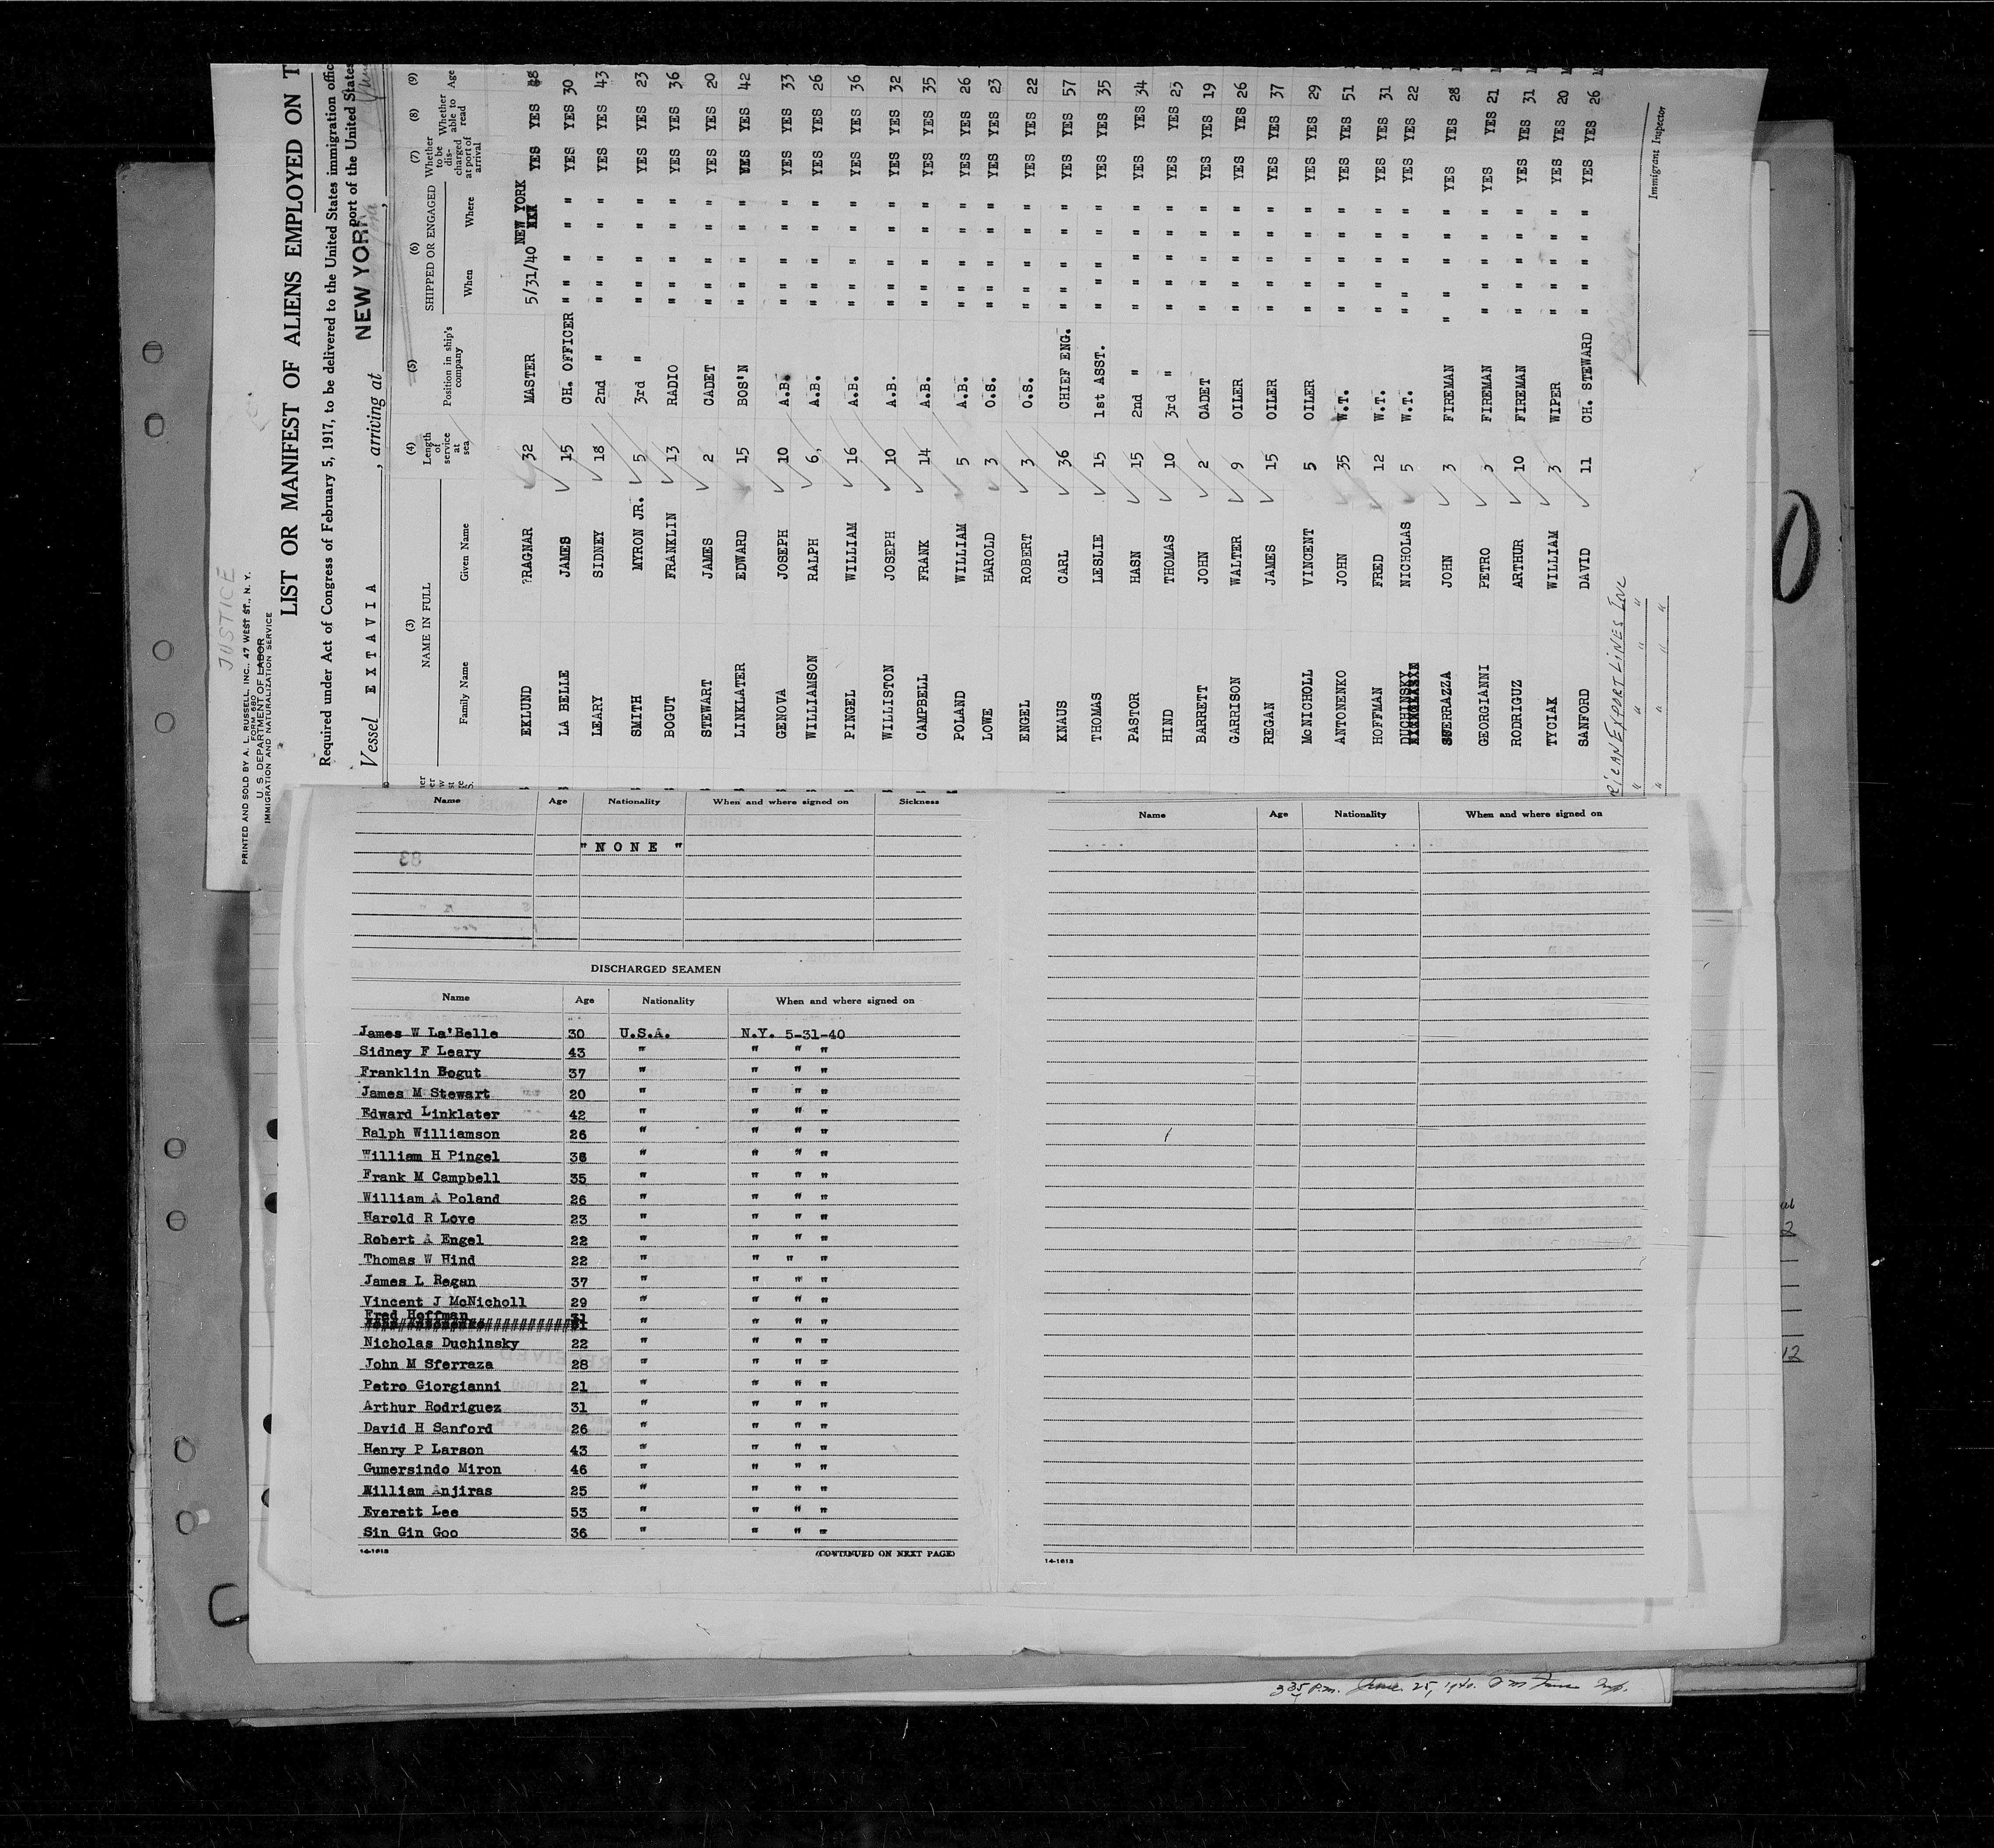 JUSTICE
PRINTED AND SOLD BY A. L. RUSSELL, INC., 47 WEST ST., N. Y.
FORM 680
U. S. DEPARTMENT OF LABOR
IMMIGRATION AND NATURALIZATION SERVICE
LIST OR MANIFEST OF ALIENS EMPLOYED ON T
Required under Act of Congress of February 5, 1917, to be delivered to the United States immigration offic
port of the United States
Vessel EXTAVIA, arriving at NEW YORK,
(3) (4) (5) (6) (7) (8) (9)
NAME IN FULL Length of service at sea Position in ship's company SHIPPED OR ENGAGED Whether to be discharged at port of arrival Whether able to read Age
Family Name Given Name When Where
EKLUND ?RAGNAR 32 MASTER 5/31/40 NEW YORK YES YES 48
LA BELLE JAMES 15 CH. OFFICER " " " " YES YES 30
LEARY SIDNEY 18 2nd " " " " " YES YES 43
SMITH MYRON JR. 5 3rd " " " " " YES YES 23
BOGUT FRANKLIN 13 RADIO " " " " YES YES 36
STEWART JAMES 2 CADET " " " " YES YES 20
LINKLATER EDWARD 15 BOS'N " " " " YES YES 42
GENOVA JOSEPH 10 A.B. " " " " YES YES 33
WILLIAMSON RALPH 6, A.B. " " " " YES YES 26
PINGEL WILLIAM 16 A.B. " " " " YES YES 36
WILLISTON JOSEPH 10 A.B. " " " " YES YES 32
CAMPBELL FRANK 14 A.B. " " " " YES YES 35
POLAND WILLIAM 5 A.B. " " " " YES YES 26
LOWE HAROLD 3 O.S. " " " " YES YES 23
ENGEL ROBERT 3 O.S. " " " " YES YES 22
KNAUS CARL 36 CHIEF ENG. " " " " YES YES 57
THOMAS LESLIE 15 1st ASST. " " " " YES YES 35
PASTOR HASN 15 2nd " " " " " YES YES 34
HIND THOMAS 10 3rd " " " " " YES YES 23
BARRETT JOHN 2 CADET " " " " YES YES 19
GARRISON WALTER 9 OILER " " " " YES YES 26
REGAN JAMES 15 OILER " " " " YES YES 37
McNICHOLL VINCENT 5 OILER " " " " YES YES 29
ANTONENKO JOHN 35 W.T. " " " " YES YES 51
HOFFMAN FRED 12 W.T. " " " " YES YES 31
DUCHINSKY NICHOLAS 5 W.T. " " " " YES YES 22
SFERRAZZA JOHN 3 FIREMAN " " " " YES YES 28
GEORGIANNI PETRO 3 FIREMAN " " " " YES YES 21
RODRIGUZ ARTHUR 10 FIREMAN " " " " YES YES 31
TYCIAK WILLIAM 3 WIPER " " " " YES YES 20
SANFORD DAVID 11 CH. STEWARD " " " " YES YES 26
RICAN EXPORT LINES INC
" " " "
" " "
Immigrant Inspector
Name Age Nationality When and where signed on Sickness
"NONE"
DISCHARGED SEAMEN
Name Age Nationality When and where signed on
James W La'Belle 30 U.S.A. N.Y. 5-31-40
Sidney F Leary 43 " " " "
Franklin Bogut 37 " " " "
James M Stewart 20 " " " "
Edward Linklater 42 " " " "
Ralph Williamson 26 " " " "
William H Pingel 36 " " " "
Frank M Campbell 35 " " " "
William A Poland 26 " " " "
Harold R Love 23 " " " "
Robert A Engel 22 " " " "
Thomas W Hind 22 " " " "
James L Regan 37 " " " "
Vincent J McNicholl 29 " " " "
Fred Hoffman 31
######################## " " " "
Nicholas Duchinsky 22 " " " "
John M Sferraza 28 " " " "
Petro Giorgianni 21 " " " "
Arthur Rodriguez 31 " " " "
David H Sanford 26 " " " "
Henry P Larson 43 " " " "
Gumersindo Miron 46 " " " "
William Anjiras 25 " " " "
Everett Lee 53 " " " "
Sin Gin Goo 36 " " " "
14-1613 (CONTINUED ON NEXT PAGE)
Name Age Nationality When and where signed on
14-1613
2
12
335 P.m. June 25, 1940.